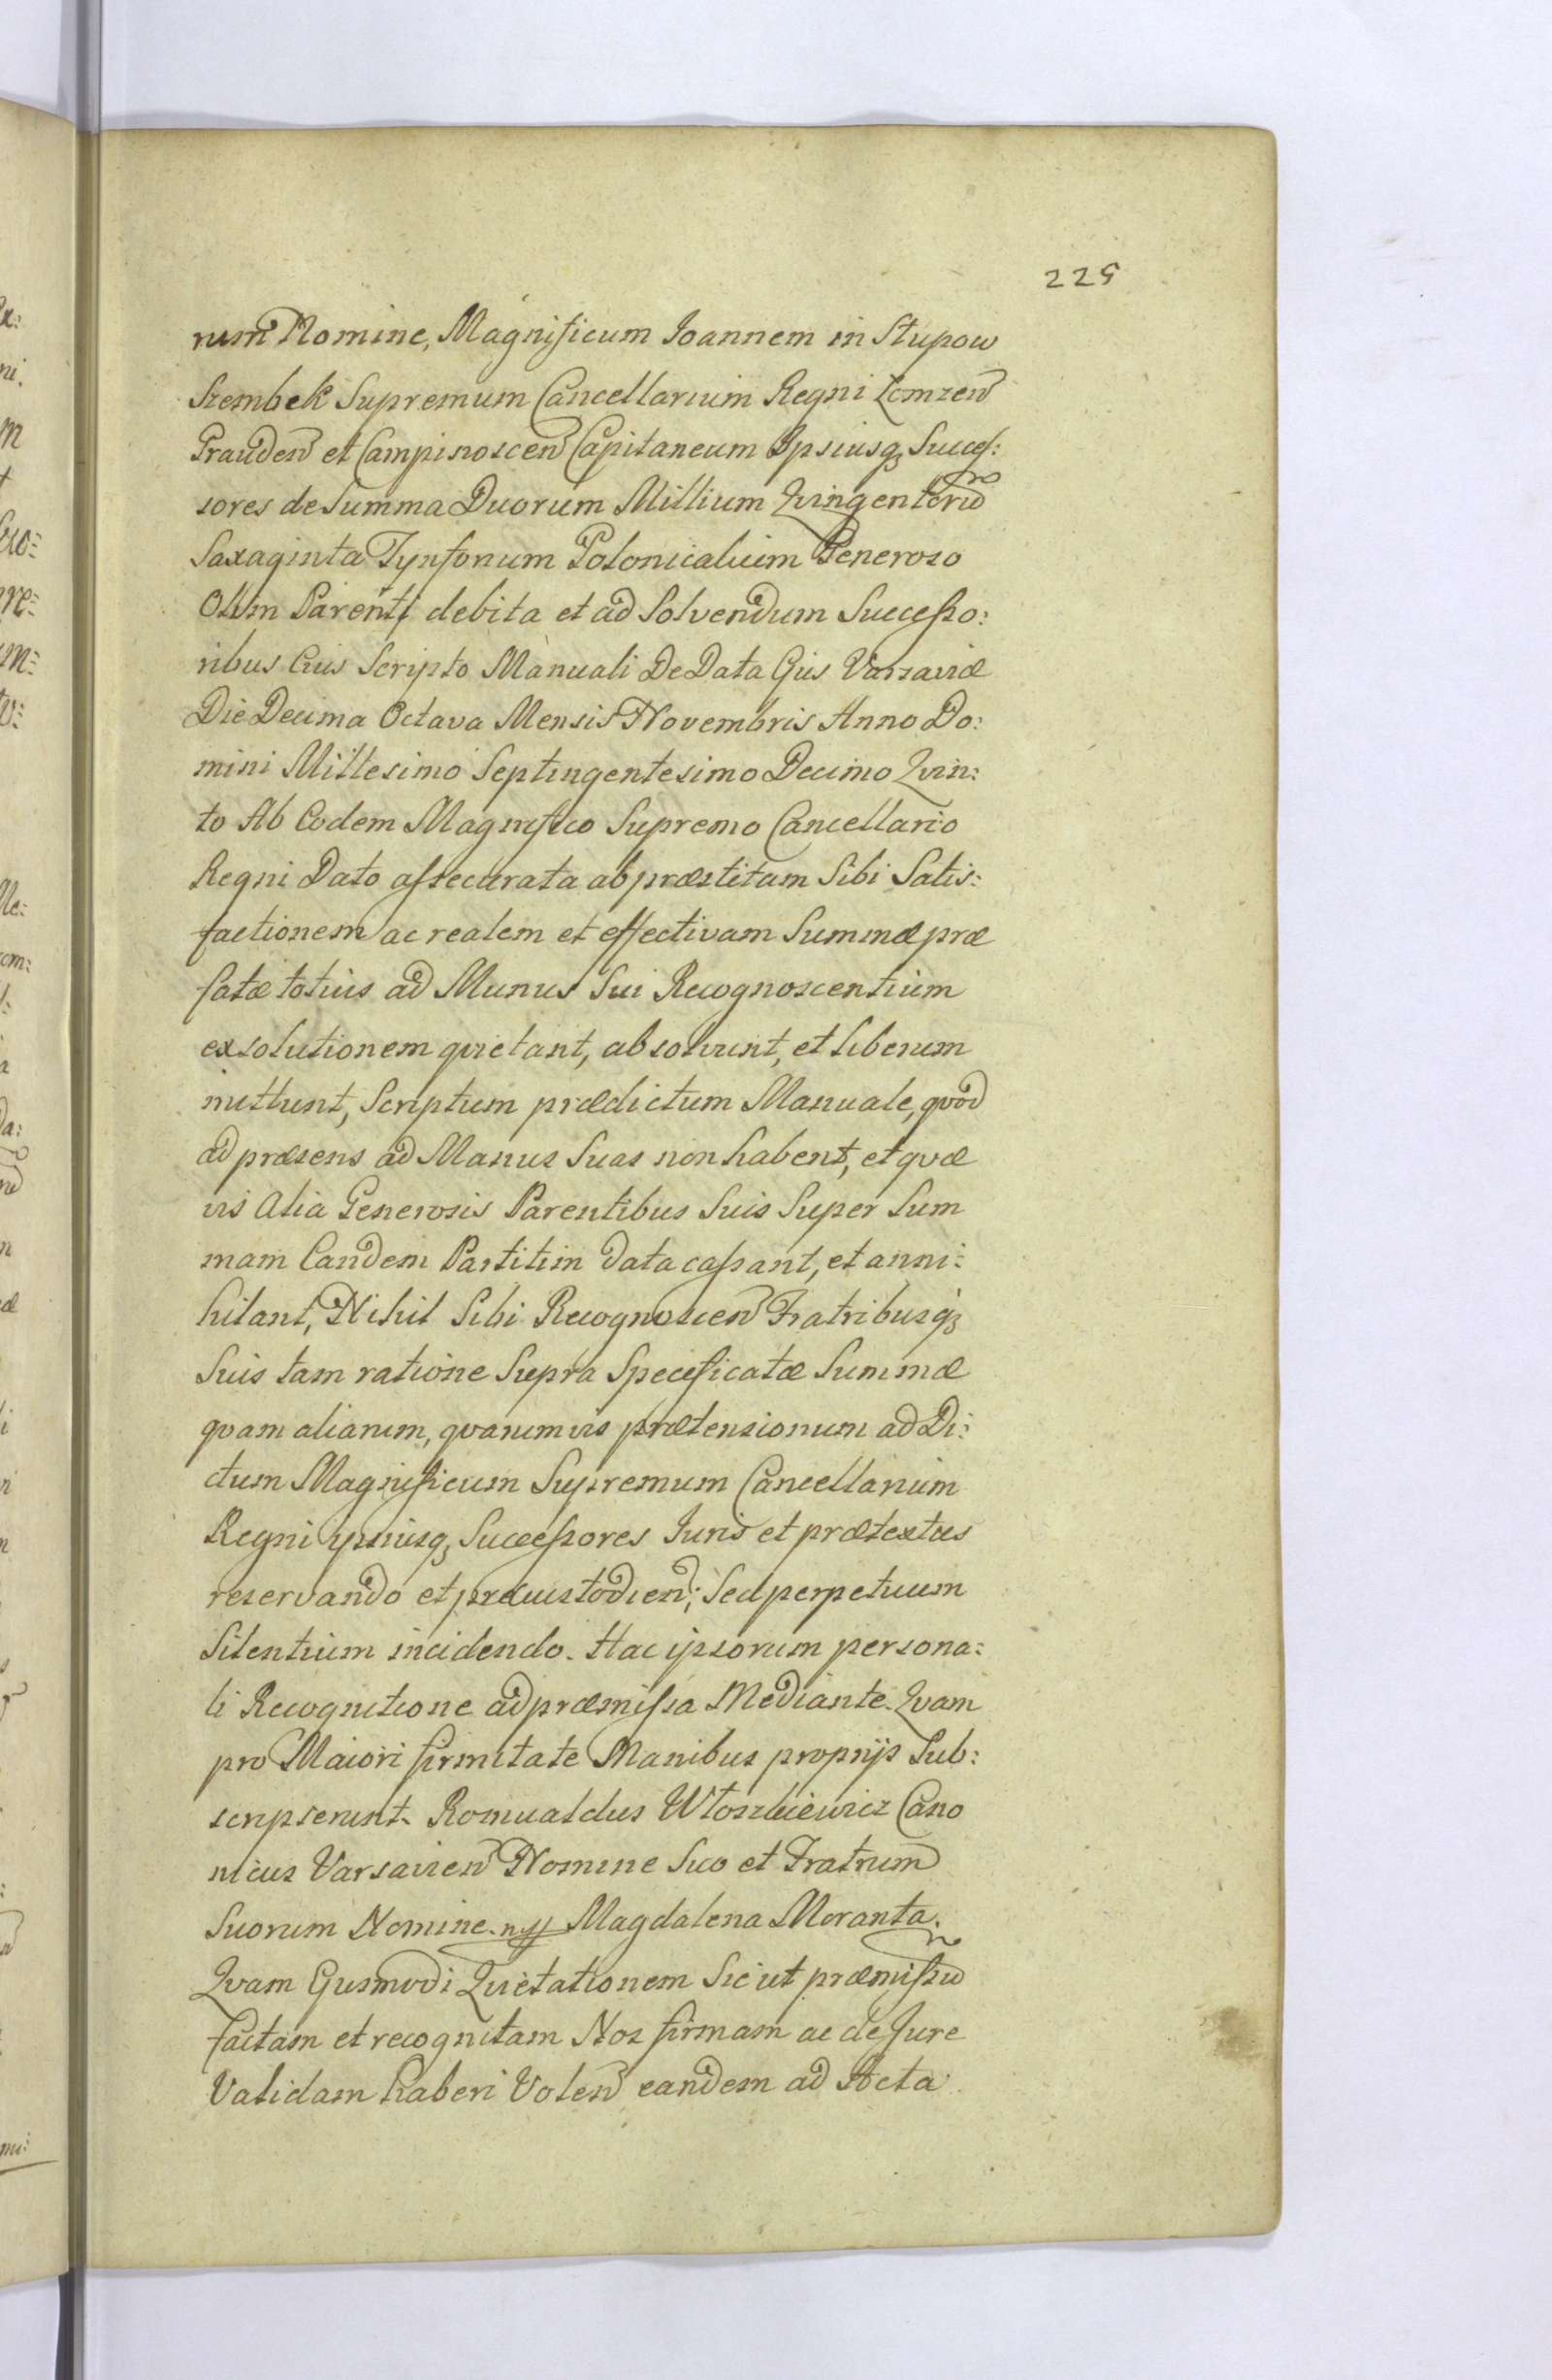 225
rum Nomine, Magnificum Joannem in Stupow
Szembek Supremum Cancellarium Regni Lomzen
Grauden et Campinoscen Capitaneum Ipsiusq, Succes:
sores de Summa Duorum Millium Qvingentoru
Saxaginta Tynfonum Polonicalium Generoso
Olim Parenti debita et ad Solvendum Successo:
ribus Eius Scripto Manuali De Data Ejus Varsaviæ
Die Decima Octava Mensis Novembris Anno Do:
mini Millesimo Septingentesimo Decimo Qvin:
to Ab Eodem Magnifico Supremo Cancellario
Regni Dato assecurata ab præstitam Sibi Satis:
factionem ac realem et effectivam Summæ præ
fatæ totius ad Munus Sui Recognoscentium
exsolutionem qvietant, absolvunt, et liberum
mittunt, Scriptum prædictum Manuale, qvod
ad præsens ad Manus Suas non habent, et qvæ
vis Alia Generosis Parentibus Suis Super Sum
mam Eandem Partitim data cassant, et anni:
hilant, Nihil Sibi Recognoscen Fratribusq,
Suis tam ratione Supra Specificatæ Summæ
qvam aliarum, qvarumvis prætensionum ad Di:
ctum Magnificum Supremum Cancellarium
Regni ipsiusq, Successores Juris et prætextus
reservando et præcustodien; Sed perpetuum
Silentium incidendo. Hac ipsorum persona:
li Recognitione ad præmissa Mediante. Qvam
pro Maiori firmitate Manibus proprijs Sub:
scripserunt. Romualdus Wloszkiewicz Cano
nicus Varsavien Nomine Suo et Fratrum
Suorum Nomine. Magdalena Moranta.
Qvam Ejusmodi Qvietationem Sicut præmissu
factam et recognitam Nos firmam ac de Jure
Validam haberi Volen eandem ad Acta